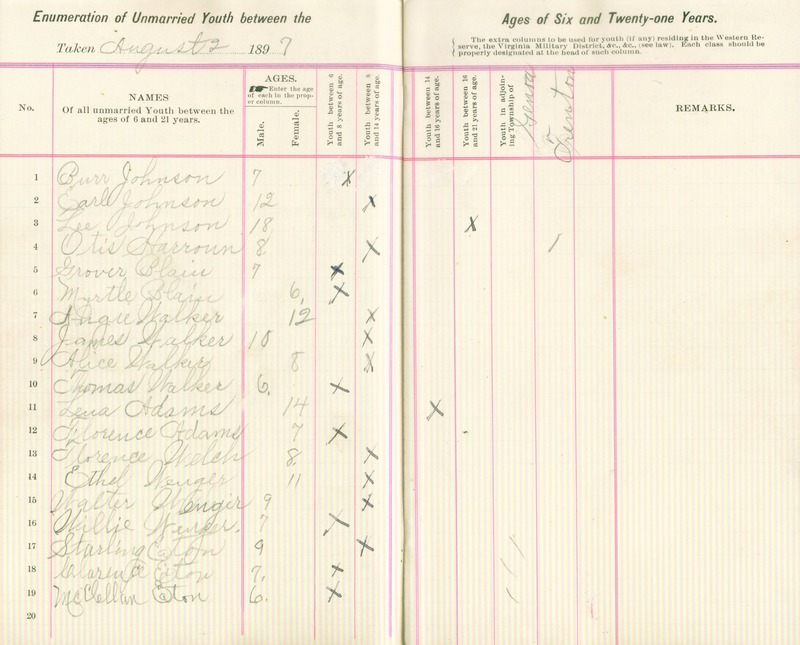 Enumeration of Unmarried Youth between the Ages of Six and Twenty-one Years.
Taken August 2 1897
The extra columns to be used for youth (if any) residing in the Western Re-
serve, the Virginia Military District, &c., &c., (see law). Each class should be
properly designated at the head of such column.
No.
NAMES
Of all unmarried Youth between the
ages of 6 and 21 years.
AGES.
Enter the age
of each in the prop-
er column.
Male.
Female.
Youth between 6
and 8 years of age.
Youth between 8
and 14 years of age.
Youth between 14
and 16 years of age.
Youth between 16
and 21 years of age.
Youth in adjoin-
ing Township of
Genoa
Trenton
REMARKS.
1 Burr Johnson 7 X
2 Earl Johnson 12 X
3 Lee Johnson 18 X
4 Otis Harroun 8 X 1
5 Grover Blain 7 X
6 Myrtle Blain 6 X
7 Angie Walker 12 X
8 James Walker 10 X
9 Alice Walker 8 X
10 Thomas Walker 6 X
11 Lena Adams 14 X
12 Florence Adams 7 X
13 Florence Welch 8 X
14 Ethel Wenger 11 X
15 Walter Wengir 9 X
16 Willie Wenger. 7 X
17 Starling Eaton 9 X 1
18 Clarence Eton 7. X 1
19 McClellan Eton 6. X 1
20